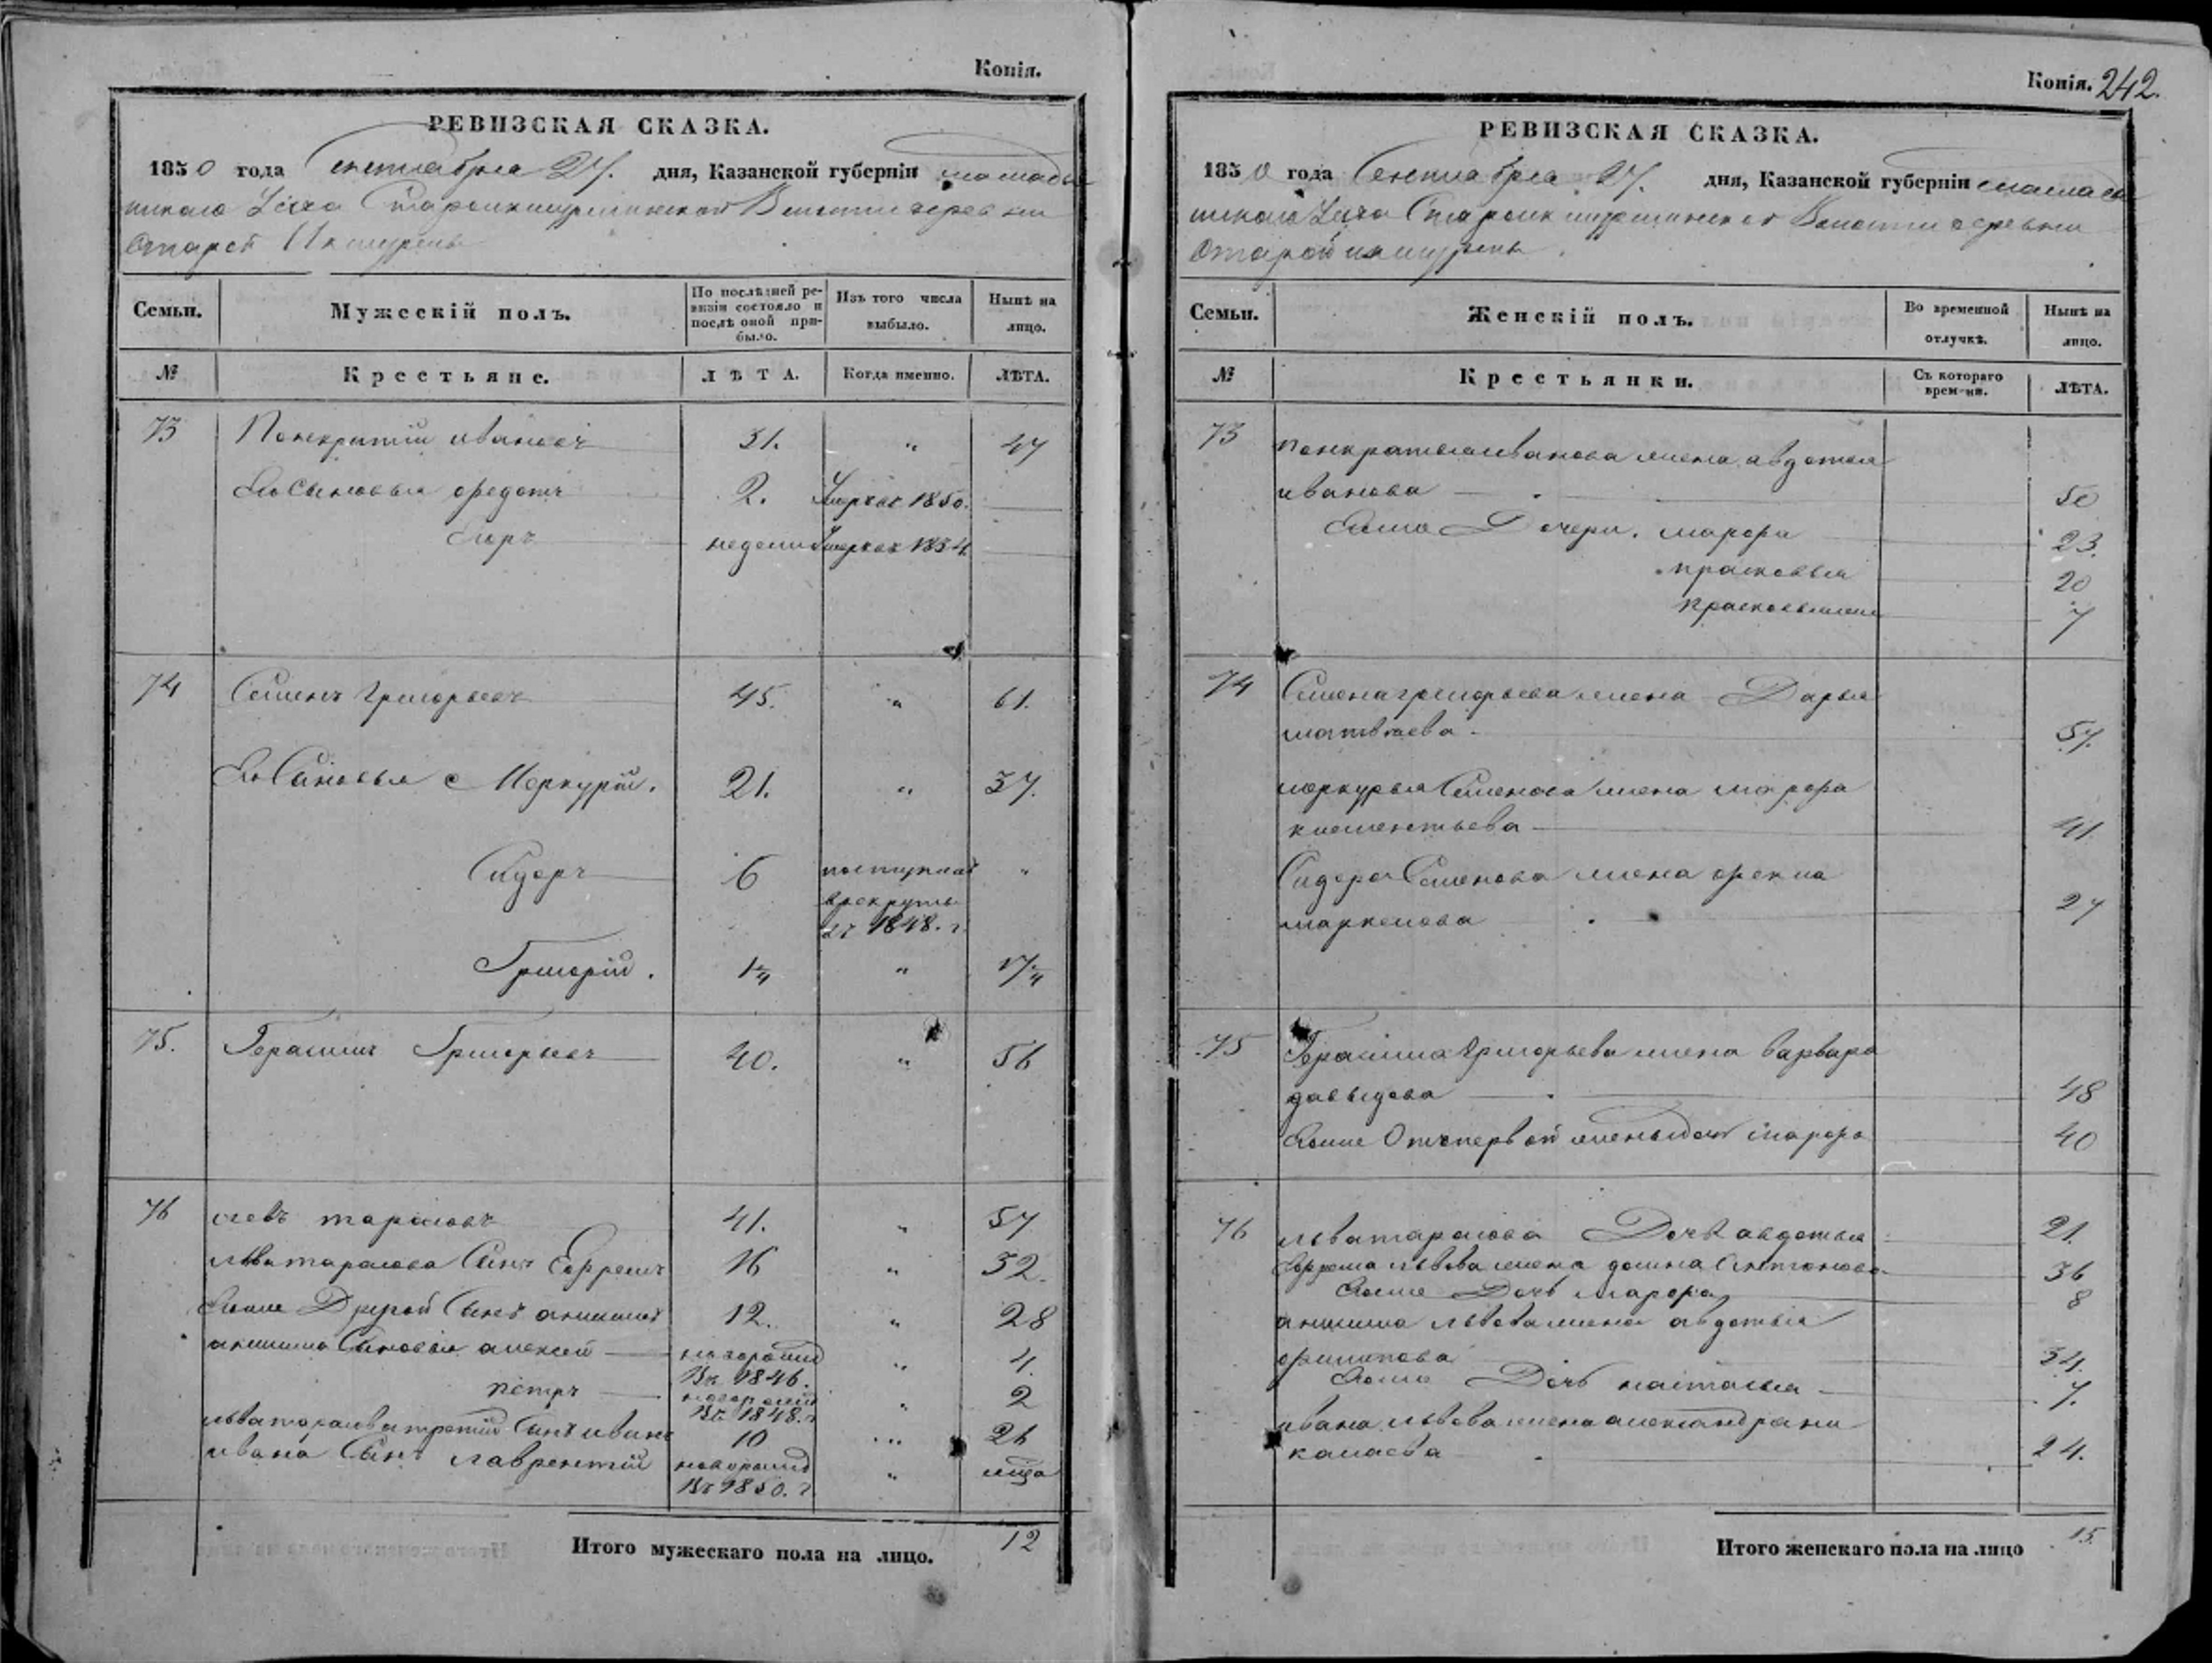 Копія.
РЕВИЗСКАЯ СКАЗКА.
1850 года Сентября 27. дня, Казанской губерніи мамады
шскаго Уезда Староикшурминской Волости деревни
Старой Икшурмы
Семьи. Мужескій полъ. По послѣдней ревизіи состояло и послѣ оной прибыло. Изъ того числа выбыло. Нынѣ на лицо.
№ Крестьяне. ЛѢТА. Когда именно. ЛѢТА.
73 Понкратій ивановъ 31. " 47
Его Сыновья федотъ 2. Умерълъ 1850.
Егоръ недели Умерълъ 1834.
74 Семенъ григорьевъ 45. " 61.
Его Сыновья Меркурій. 21. " 37.
Сидоръ 6 поступилъ "
врекруты
въ 1848. г.
Григорій. 1¼ " 17¼
75. Герасимъ Григорьевъ 40. " 56
76 левъ тарасовъ 41. " 57
льва тарасова Сынъ Ефремъ 16 " 32.
Егоже Другой Сынъ анисимъ 12. " 28
анисима Сыновья алексей новорожд " 4.
Въ 1846.
петръ новорожд " 2
Въ 1848. г
льва тарасова третій Сынъ иванъ 10 " 26
ивана Сынъ лаврентій новорожд " м\u0463сяца
Въ 1850. г.
Итого мужескаго пола на лицо. 12
Копія. 242.
РЕВИЗСКАЯ СКАЗКА.
1850 года Сентября 27. дня, Казанской губерніи мамады
шскаго Уезда Староикшурминской Волости деревни
Старой икшурмы.
Семьи. Женскій полъ. Во временной отлучкѣ. Нынѣ на лицо.
№ Крестьянки. Съ котораго времени. ЛѢТА.
73 понкратья иванова жена авдотья
иванова 50
Егоже Дочери. марфа 23.
прасковья 20
прасковья 7
74 Семена григорьева жена Дарья
матвѣева 57.
меркурья Семенова жена марфа
клементьева 41
Сидора Семенова жена фекла
маркелова 27
75 Герасима Григорьева жена варвара
давыдова 48
Егоже Отъ первой жены дочь марфа 40
76 льва тарасова Дочь авдотья 21.
Ефрема львова жена домна Антонова 36
Егоже Дочь марфа 8
анисима львова жена авдотья
филипова 34.
Егоже Дочь настасья 7.
ивана львова жена александра ни
калаева 24.
Итого женскаго пола на лицо 15.